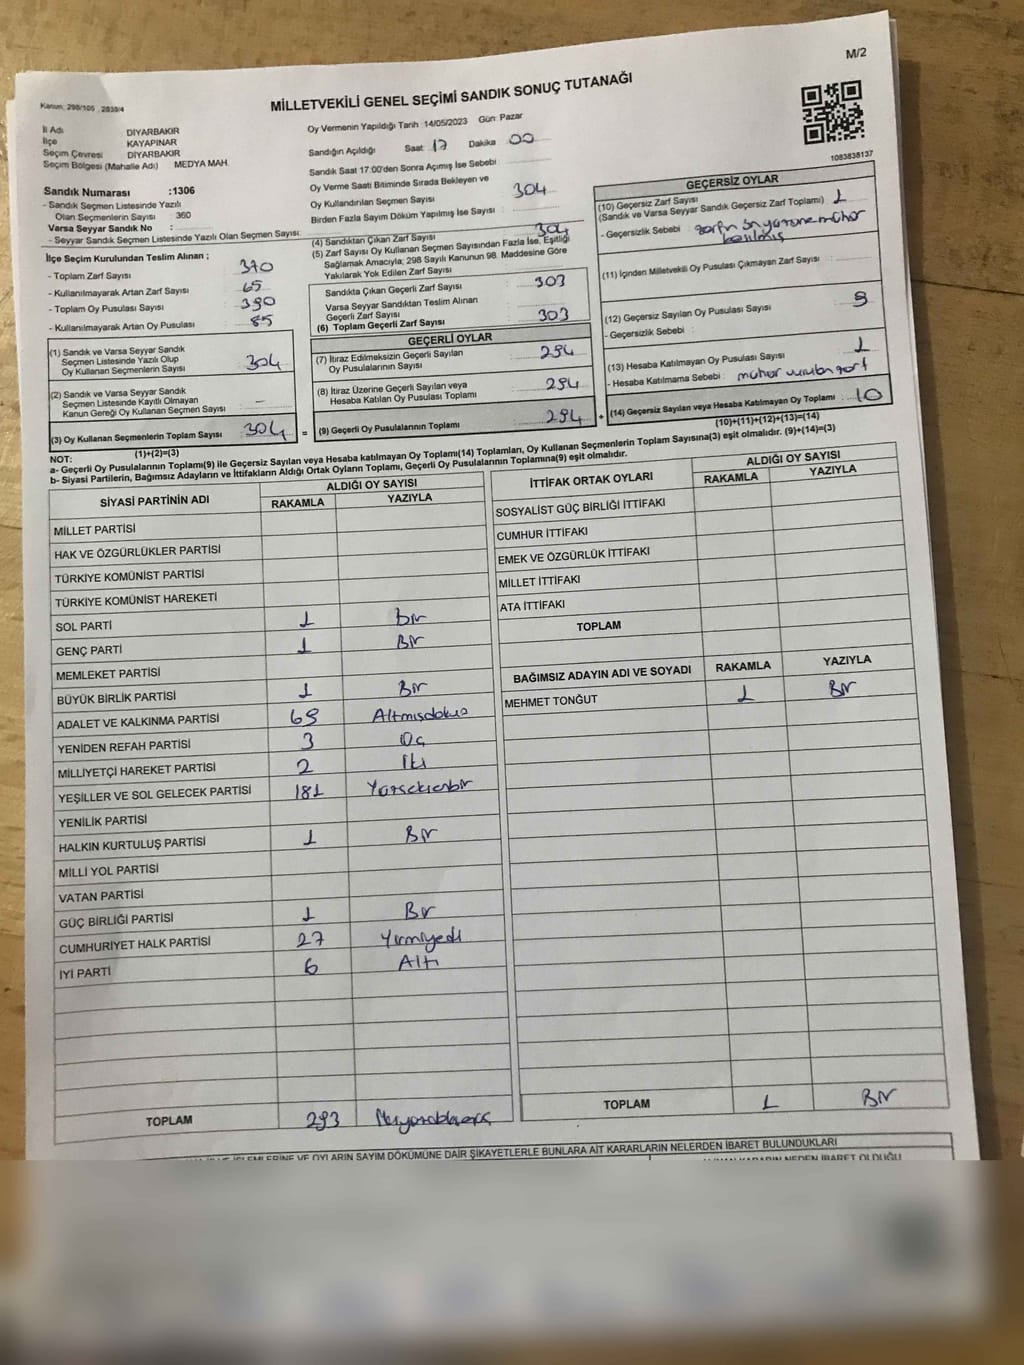 M/2
Kanun: 298/105 , 2839/4
MİLLETVEKİLİ GENEL SEÇİMİ SANDIK SONUÇ TUTANAĞI
İl Adı DİYARBAKIR
İlçe KAYAPINAR
Seçim Çevresi DİYARBAKIR
Seçim Bölgesi (Mahalle Adı) MEDYA MAH.
Sandık Numarası :1306
- Sandık Seçmen Listesinde Yazılı
Olan Seçmenlerin Sayısı : 360
Varsa Seyyar Sandık No :
- Seyyar Sandık Seçmen Listesinde Yazılı Olan Seçmen Sayısı:
Oy Vermenin Yapıldığı Tarih 14/05/2023 Gün: Pazar
Sandığın Açıldığı Saat 17 Dakika 00
Sandık Saat 17:00'den Sonra Açımış İse Sebebi
Oy Verme Saati Bitiminde Sırada Bekleyen ve
Oy Kullandırılan Seçmen Sayısı 304
Birden Fazla Sayım Döküm Yapılmış İse Sayısı
1083838137
İlçe Seçim Kurulundan Teslim Alınan ;
- Toplam Zarf Sayısı 370
- Kullanılmayarak Artan Zarf Sayısı 65
- Toplam Oy Pusulası Sayısı 390
- Kullanılmayarak Artan Oy Pusulası 85
(1) Sandık ve Varsa Seyyar Sandık
Seçmen Listesinde Yazılı Olup
Oy Kullanan Seçmenlerin Sayısı 304
(2) Sandık ve Varsa Seyyar Sandık
Seçmen Listesinde Kayıtlı Olmayan
Kanun Gereği Oy Kullanan Seçmen Sayısı : -
(3) Oy Kullanan Seçmenlerin Toplam Sayısı 304
(1)+(2)=(3)
(4) Sandıktan Çıkan Zarf Sayısı 304
(5) Zarf Sayısı Oy Kullanan Seçmen Sayısından Fazla İse, Eşitliği
Sağlamak Amacıyla; 298 Sayılı Kanunun 98. Maddesine Göre
Yakılarak Yok Edilen Zarf Sayısı
Sandıkta Çıkan Geçerli Zarf Sayısı : 303
Varsa Seyyar Sandıktan Teslim Alınan
Geçerli Zarf Sayısı
(6) Toplam Geçerli Zarf Sayısı 303
GEÇERLİ OYLAR
(7) İtiraz Edilmeksizin Geçerli Sayılan
Oy Pusulalarının Sayısı 294
(8) İtiraz Üzerine Geçerli Sayılan veya
Hesaba Katılan Oy Pusulası Toplamı 294
(9) Geçerli Oy Pusulalarının Toplamı 294
GEÇERSİZ OYLAR
(10) Geçersiz Zarf Sayısı
(Sandık ve Varsa Seyyar Sandık Geçersiz Zarf Toplamı) 1
- Geçersizlik Sebebi : zarfın ön yüzüne mühür
basılmış
(11) İçinden Milletvekili Oy Pusulası Çıkmayan Zarf Sayısı :
(12) Geçersiz Sayılan Oy Pusulası Sayısı 9
- Geçersizlik Sebebi :
(13) Hesaba Katılmayan Oy Pusulası Sayısı 1
- Hesaba Katılmama Sebebi : mühür vurulan zarf
(14) Geçersiz Sayılan veya Hesaba Katılmayan Oy Toplamı : 10
(10)+(11)+(12)+(13)=(14)
NOT:
a- Geçerli Oy Pusulalarının Toplamı(9) ile Geçersiz Sayılan veya Hesaba katılmayan Oy Toplamı(14) Toplamları, Oy Kullanan Seçmenlerin Toplam Sayısına(3) eşit olmalıdır. (9)+(14)=(3)
b- Siyasi Partilerin, Bağımsız Adayların ve İttifakların Aldığı Ortak Oyların Toplamı, Geçerli Oy Pusulalarının Toplamına(9) eşit olmalıdır.
SİYASİ PARTİNİN ADI ALDIĞI OY SAYISI
RAKAMLA YAZIYLA
MİLLET PARTİSİ
HAK VE ÖZGÜRLÜKLER PARTİSİ
TÜRKİYE KOMÜNİST PARTİSİ
TÜRKİYE KOMÜNİST HAREKETİ
SOL PARTİ 1 bir
GENÇ PARTİ 1 Bir
MEMLEKET PARTİSİ
BÜYÜK BİRLİK PARTİSİ 1 Bir
ADALET VE KALKINMA PARTİSİ 69 Altmışdokuz
YENİDEN REFAH PARTİSİ 3 Üç
MİLLİYETÇİ HAREKET PARTİSİ 2 İki
YEŞİLLER VE SOL GELECEK PARTİSİ 181 Yüzseksenbir
YENİLİK PARTİSİ
HALKIN KURTULUŞ PARTİSİ 1 Bir
MİLLİ YOL PARTİSİ
VATAN PARTİSİ
GÜÇ BİRLİĞİ PARTİSİ 1 Bir
CUMHURİYET HALK PARTİSİ 27 Yirmiyedi
İYİ PARTİ 6 Altı
TOPLAM 293
İTTİFAK ORTAK OYLARI ALDIĞI OY SAYISI
RAKAMLA YAZIYLA
SOSYALİST GÜÇ BİRLİĞİ İTTİFAKI
CUMHUR İTTİFAKI
EMEK VE ÖZGÜRLÜK İTTİFAKI
MİLLET İTTİFAKI
ATA İTTİFAKI
TOPLAM
BAĞIMSIZ ADAYIN ADI VE SOYADI RAKAMLA YAZIYLA
MEHMET TONĞUT 1 Bir
TOPLAM 1 Bir
OYLARIN SAYIM DÖKÜMÜNE DAİR ŞİKAYETLERLE BUNLARA AİT KARARLARIN NELERDEN İBARET BULUNDUKLARI
KARARIN NEDEN İBARET OLDUĞU